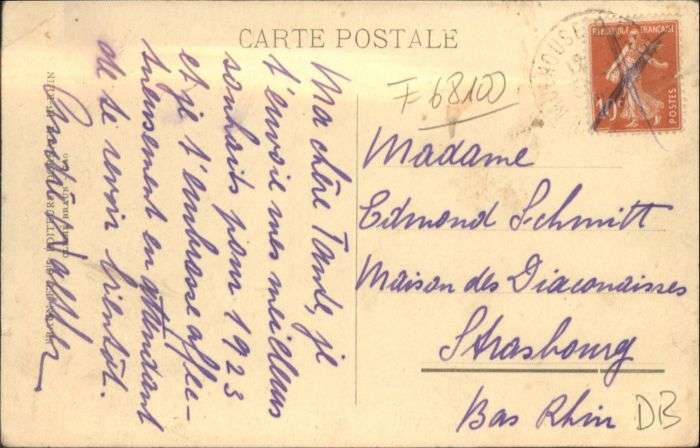 CARTE POSTALE
Ma chère Tante, je
t'envoie mes meilleurs
souhaits pour 1923
et je t'embrasse affec-
tueusement en attendant
de te revoir bientôt.
F 68100
REPUBLIQUE FRANÇAISE
10c
POSTES
Madame
Edmond Schmitt
Maison des Diaconaisses
Strasbourg
Bas Rhin
DB